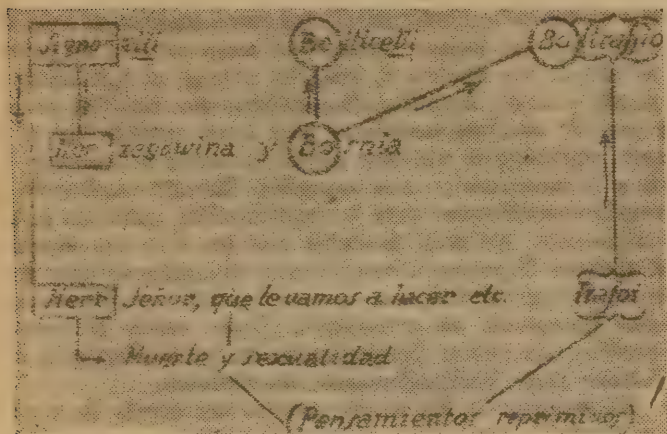 Signorelli Botticelli Boltraffio
Her zegowina y Bosnia
Herr Señor, que le vamos a hacer etc. Trafoi
Muerte y sexualidad
(Pensamientos reprimidos)